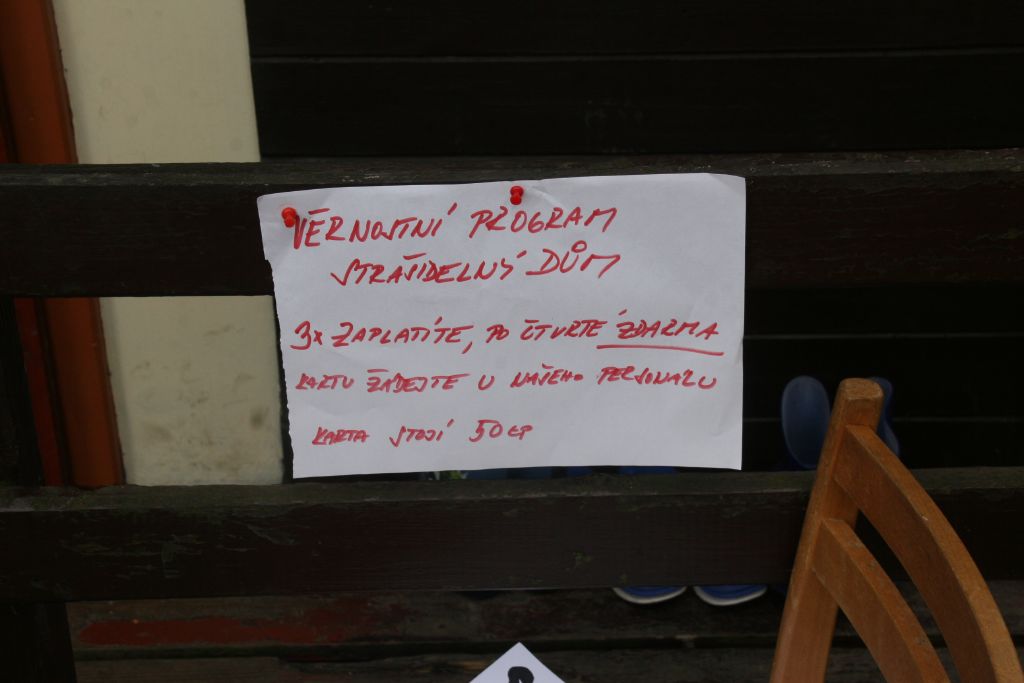 VĚRNOSTNÍ PROGRAM
STRAŠIDELNÝ DŮM
3x ZAPLATÍTE, PO ČTVRTÉ ZDARMA
KARTU ŽÁDEJTE U NAŠEHO PERSONÁLU
KARTA STOJÍ 50 CP